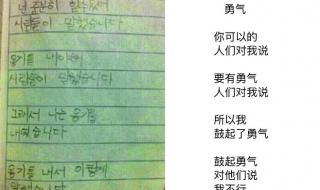 넌 충분히 할 수 있어
사람들이 말했습니다
용기를 내야해
사람들이 말했습니다
그래서 나는 용기를
내었습니다
용기를 내서 이렇게
말했습니다
勇气
你可以的
人们对我说
要有勇气
人们对我说
所以我
鼓起了勇气
鼓起勇气
对他们说
我不行